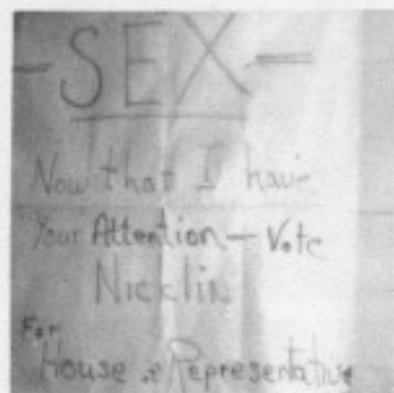 -SEX-
Now that I have
Your Attention - Vote
Nicklin
For
House of Representative